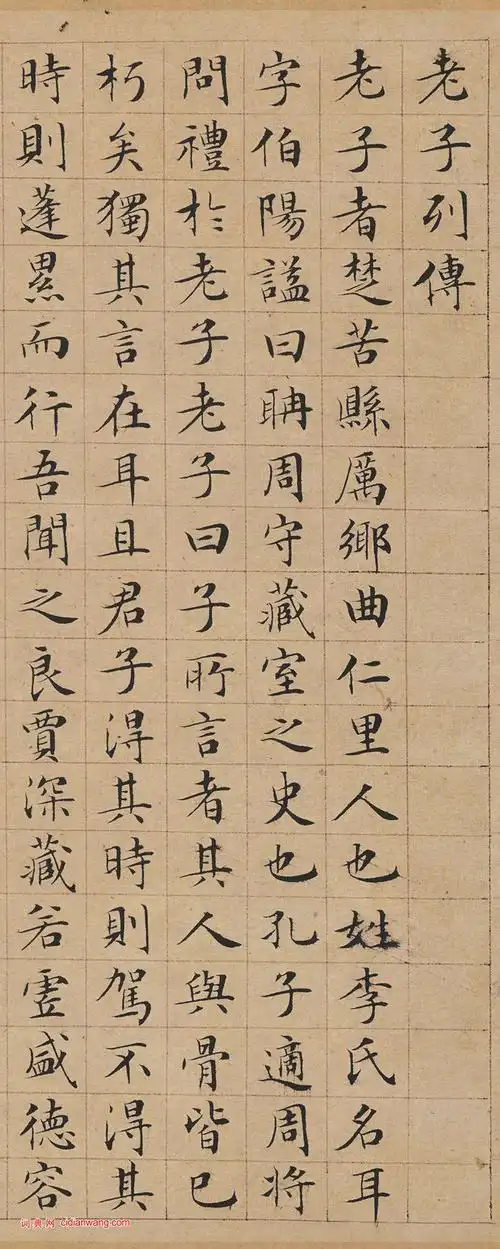 老子列傳
老子者楚苦縣厲鄉曲仁里人也姓李氏名耳
字伯陽謚曰聃周守藏室之史也孔子適周將
問禮於老子老子曰子所言者其人與骨皆已
朽矣獨其言在耳且君子得其時則駕不得其
時則蓬累而行吾聞之良賈深藏若虛盛德容
词典网 cidianwang.com